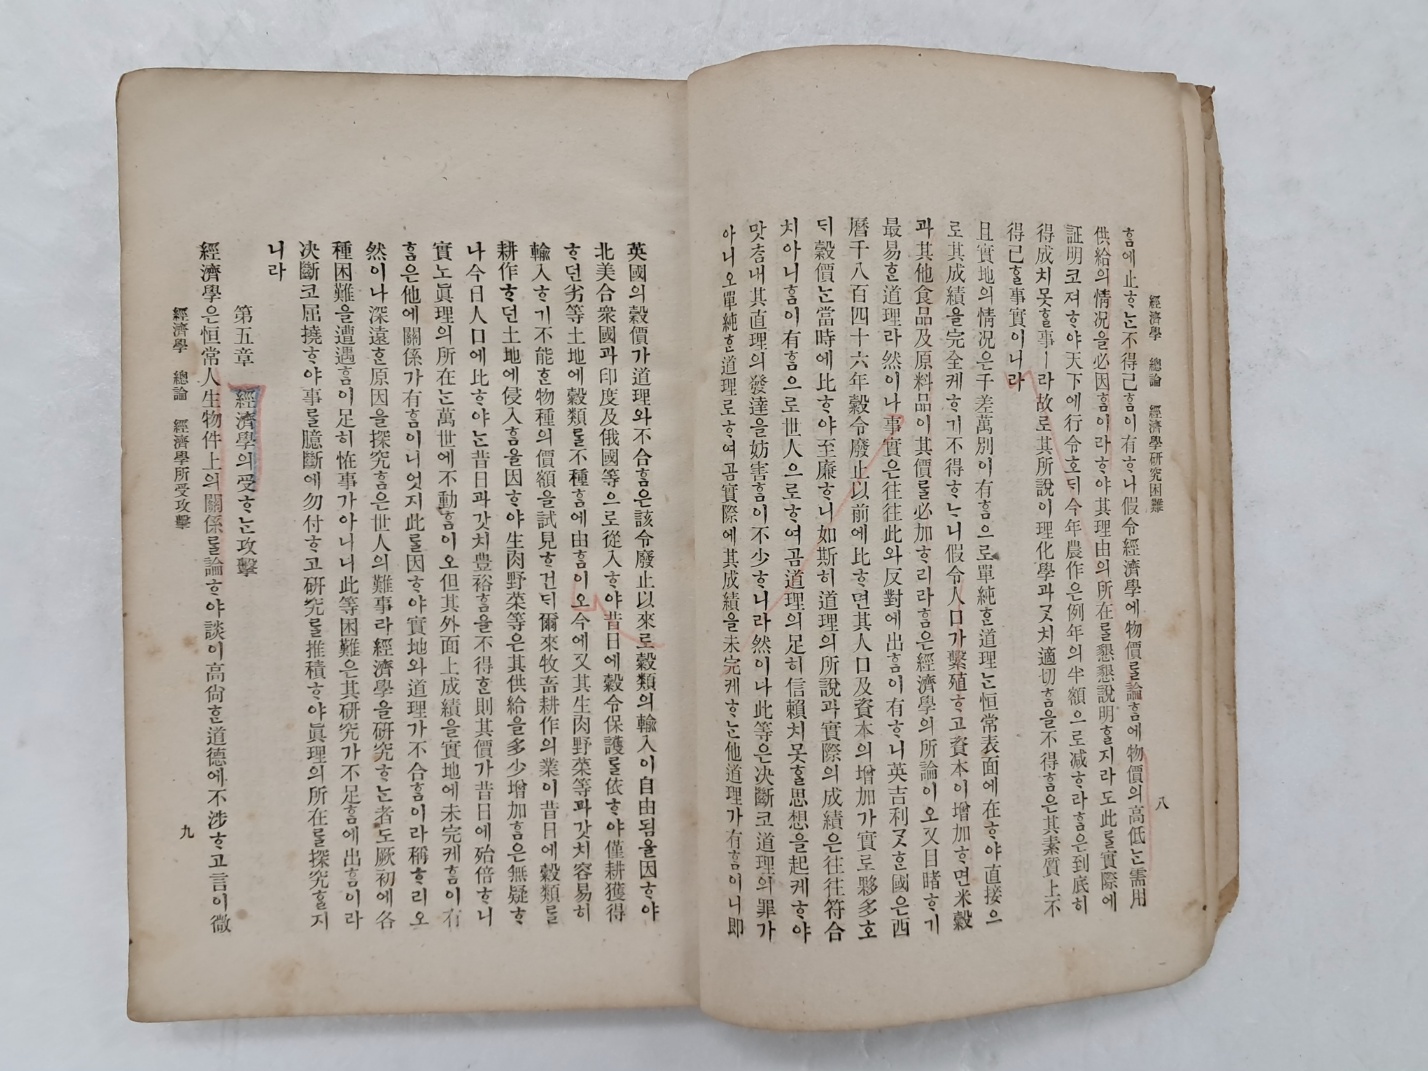 經濟學 總論 經濟學硏究困難 八
ᄒᆞᆷ에止ᄒᆞᄂᆞᆫ不得已ᄒᆞᆷ이有ᄒᆞ니假令經濟學에物價ᄅᆞᆯ論ᄒᆞᆷ에物價의高低ᄂᆞᆫ需用
供給의情况을必因ᄒᆞᆷ이라ᄒᆞ야其理由의所在ᄅᆞᆯ懇懇說明ᄒᆞᆯ지라도此ᄅᆞᆯ實際에
証明코져ᄒᆞ야天下에行令호ᄃᆡ今年農作은例年의半額으로减ᄒᆞ라ᄒᆞᆷ은到底히
得成치못ᄒᆞᆯ事ㅣ라故로其所說이理化學과ᄀᆞᆺ치適切ᄒᆞᆷ을不得ᄒᆞᆷ은其素質上不
得已ᄒᆞᆯ事實이니라
且實地의情况은千差萬別이有ᄒᆞᆷ으로單純ᄒᆞᆫ道理ᄂᆞᆫ恒常表面에在ᄒᆞ야直接으
로其成績을完全케ᄒᆞ기不得ᄒᆞᄂᆞ니假令人口가繁殖ᄒᆞ고資本이增加ᄒᆞ면米穀
과其他食品及原料品이其價ᄅᆞᆯ必加ᄒᆞ리라ᄒᆞᆷ은經濟學의所論이오又目睹ᄒᆞ기
最易ᄒᆞᆫ道理라然이나事實은往往此와反對에出ᄒᆞᆷ이有ᄒᆞ니英吉利ᄀᆞᆺᄒᆞᆫ國은西
曆千八百四十六年穀令廢止以前에比ᄒᆞ면其人口及資本의增加가實로夥多호
ᄃᆡ穀價ᄂᆞᆫ當時에比ᄒᆞ야至廉ᄒᆞ니如斯히道理의所說과實際의成績은往往符合
치아니ᄒᆞᆷ이有ᄒᆞᆷ으로世人으로ᄒᆞ여곰道理의足히信賴치못ᄒᆞᆯ思想을起케ᄒᆞ야
맛ᄎᆞᆷ내其直理의發達을妨害ᄒᆞᆷ이不少ᄒᆞ니라然이나此等은决斷코道理의罪가
아니오單純ᄒᆞᆫ道理로ᄒᆞ여곰實際에其成績을未完케ᄒᆞᄂᆞᆫ他道理가有ᄒᆞᆷ이니即
英國의穀價가道理와不合ᄒᆞᆷ은該令廢止以來로穀類의輸入이自由됨을因ᄒᆞ야
北美合衆國과印度及俄國等으로從入ᄒᆞ야昔日에穀令保護ᄅᆞᆯ依ᄒᆞ야僅耕獲得
ᄒᆞ던劣等土地에穀類ᄅᆞᆯ不種ᄒᆞᆷ에由ᄒᆞᆷ이오今에又其生肉野菜等과갓치容易히
輸入ᄒᆞ기不能ᄒᆞᆫ物種의價額을試見ᄒᆞ건ᄃᆡ爾來牧畜耕作의業이昔日에穀類ᄅᆞᆯ
耕作ᄒᆞ던土地에侵入ᄒᆞᆷ을因ᄒᆞ야生肉野菜等은其供給을多少增加ᄒᆞᆷ은無疑ᄒᆞ
나今日人口에比ᄒᆞ야ᄂᆞᆫ昔日과갓치豊裕ᄒᆞᆷ을不得ᄒᆞᆫ則其價가昔日에殆倍ᄒᆞ니
實노眞理의所在ᄂᆞᆫ萬世에不動ᄒᆞᆷ이오但其外面上成績을實地에未完케ᄒᆞᆷ이有
ᄒᆞᆷ은他에關係가有ᄒᆞᆷ이니엇지此ᄅᆞᆯ因ᄒᆞ야實地와道理가不合ᄒᆞᆷ이라稱ᄒᆞ리오
然이나深遠ᄒᆞᆫ原因을探究ᄒᆞᆷ은世人의難事라經濟學을硏究ᄒᆞᄂᆞᆫ者도厥初에各
種困難을遭遇ᄒᆞᆷ이足히恠事가아니니此等困難은其硏究가不足ᄒᆞᆷ에出ᄒᆞᆷ이라
决斷코屈撓ᄒᆞ야事ᄅᆞᆯ臆斷에勿付ᄒᆞ고硏究ᄅᆞᆯ推積ᄒᆞ야眞理의所在ᄅᆞᆯ探究ᄒᆞᆯ지
니라
第五章 經濟學의受ᄒᆞᄂᆞᆫ攻擊
經濟學은恒常人生物件上의關係ᄅᆞᆯ論ᄒᆞ야談이高尙ᄒᆞᆫ道德에不涉ᄒᆞ고言이微
經濟學 總論 經濟學所受攻擊 九